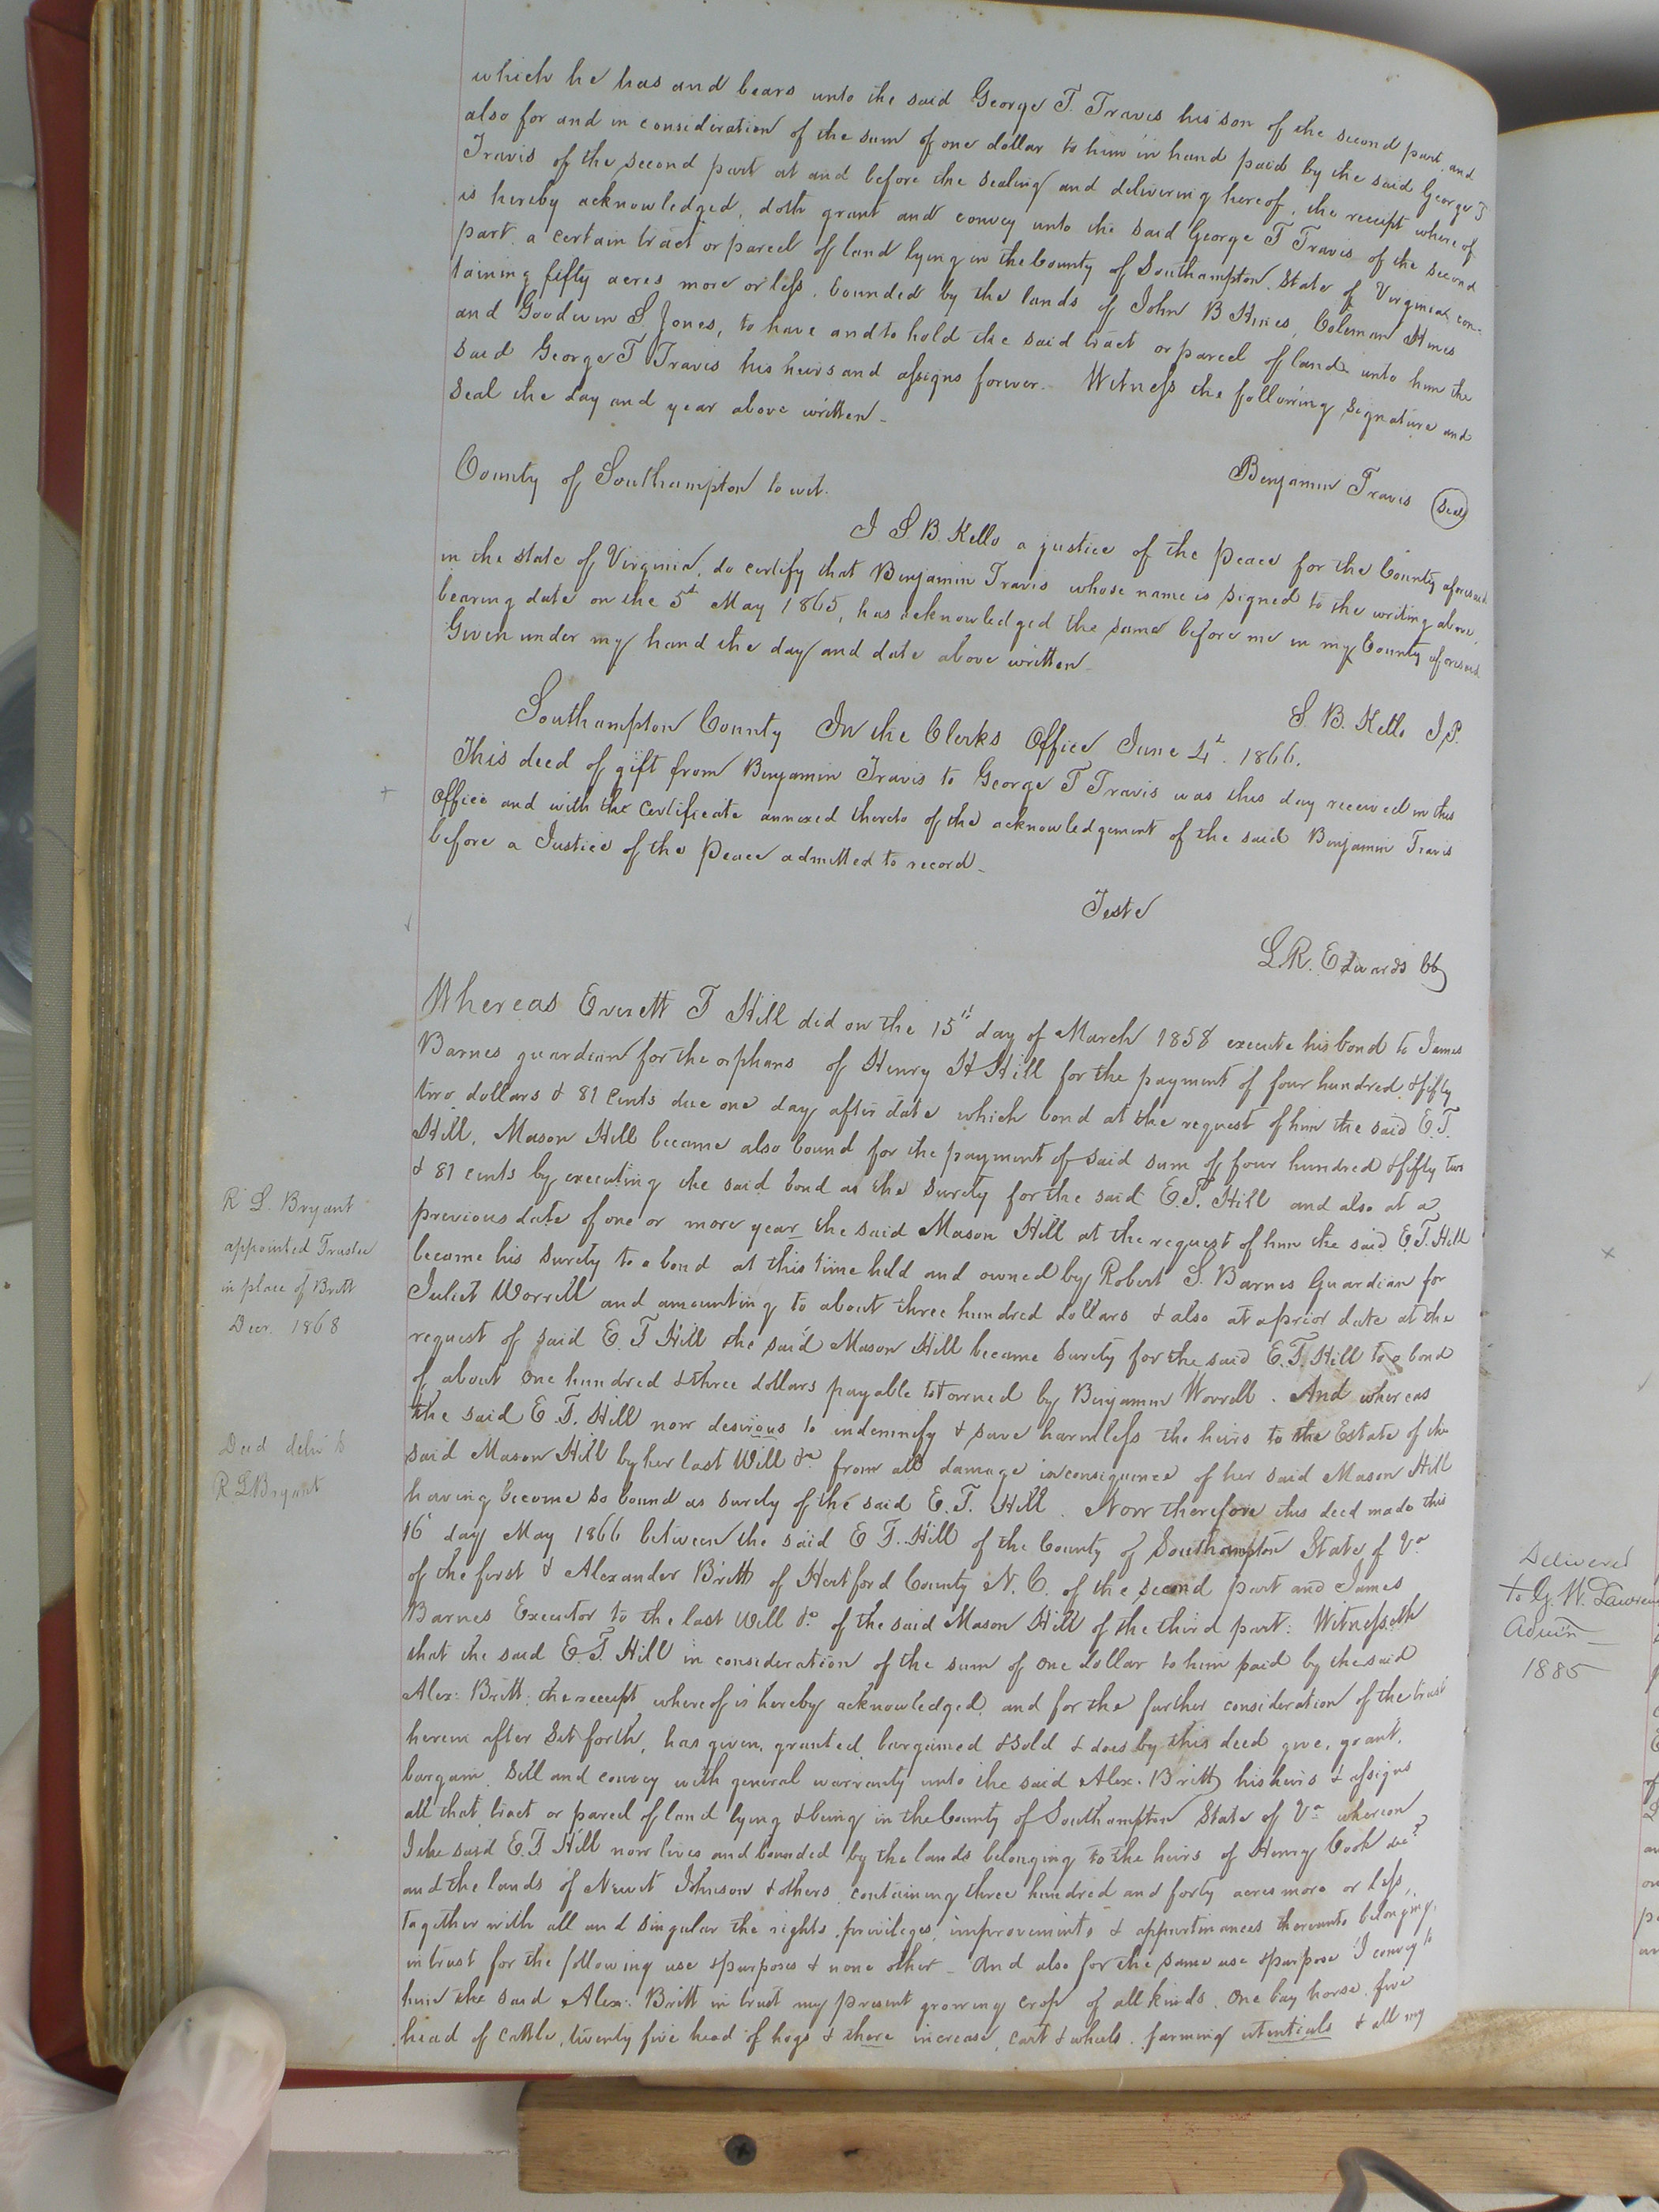 which he has and bears unto the said George T. Travis his son of the second part and
also for and in consideration of the sum of one dollar to him in hand paid by the said George T
Travis of the second part at and before the sealing and delivering hereof, the receipt whereof
is hereby acknowledged, doth grant and convey unto the said George T Travis of the second
part, a certain tract or parcel of land lying in the County of Southampton, State of Virginia, con-
taining fifty acres more or less, bounded by the lands of John B Hines, Coleman Hines
and Goodwin S Jones, to have and to hold the said tract or parcel of land unto him the
said George T Travis his heirs and assigns forever. Witness the following signature and
seal the day and year above written_
Benjamin Travis (Seal)
County of Southampton to wit.
I S. B. Kello a justice of the peace for the County aforesaid
in the state of Virginia, do certify that Benjamin Travis whose name is signed to the writing above,
bearing date on the 5th May 1865, has acknowledged the same before me in my County aforesaid
Given under my hand the day and date above written_
S. B. Kello J.P.
Southampton County In the Clerks Office June 4th. 1866.
This deed of gift from Benjamin Travis to George T Travis was this day received in this
Office and with the certificate annexed thereto of the acknowledgement of the said Benjamin Travis
before a Justice of the Peace admitted to record_
Teste
L. R. Edwards
Whereas Everett T Hill did on the 15th day of March 1858 execute his bond to James
Barnes guardian for the orphans of Henry H Hill for the payment of four hundred & fifty
two dollars & 81 Cents due one day after date which bond at the request of him the said E. T.
Hill, Mason Hill became also bound for the payment of said sum of four hundred & fifty two
& 81 cents by executing the said bond as the surety for the said E. T. Hill and also at a
previous date of one or more year the said Mason Hill at the request of him the said E. T. Hill
became his surety to a bond at this time held and owned by Robert S. Barnes Guardian for
Juliet Worrell and amounting to about three hundred dollars & also at a prior date at the
request of said E. T Hill the said Mason Hill became surety for the said E. T. Hill to a bond
of about one hundred & three dollars payable to & owned by Benjamin Worrell. And whereas
the said E T. Hill now desirous to indemnify & save harmless the heirs to the Estate of the
said Mason Hill by her last Will &c from all damage in consequence of her said Mason Hill
having become so bound as surety of the said E. T. Hill. Now therefore this deed made this
16t day May 1866 between the said E T. Hill of the County of Southampton State of Va
of the first & Alexander Britt of Hertford County N. C. of the second part and James
Barnes Executor to the last Will &c of the said Mason Hill of the third part: Witnesseth
that the said E. T. Hill in consideration of the sum of one dollar to him paid by the said
Alex: Britt, the receipt whereof is hereby acknowledged, and for the further consideration of the trust
herein after set forth, has given, granted, bargained & sold & does by this deed give, grant,
bargain, sell and convey with general warranty unto the said Alex. Britt his heirs & assigns
all that tract or parcel of land lying & being in the County of Southampton State of Va whereon
I the said E. T Hill now lives and bounded by the lands belonging to the heirs of Henry Cook decd
and the lands of Newit Johnson & others, containing three hundred and forty acres more or less,
together with all and singular the rights, privileges, improvements & appurtinances thereunto belonging,
in trust for the following use & purposes & none other_ And also for the same use & purpose I convey to
him the said Alex: Britt in trust my present growing crop of all kinds, one bay horse, five
head of cattle, twenty five head of hogs & there increase, cart & wheels, farming utentials & all my
R L. Bryant
appointed Trustee
in place of Britt
Decr. 1868
Deed delivd to
R L Bryant
Delivered
to G. W. Lawren
Admr
1885